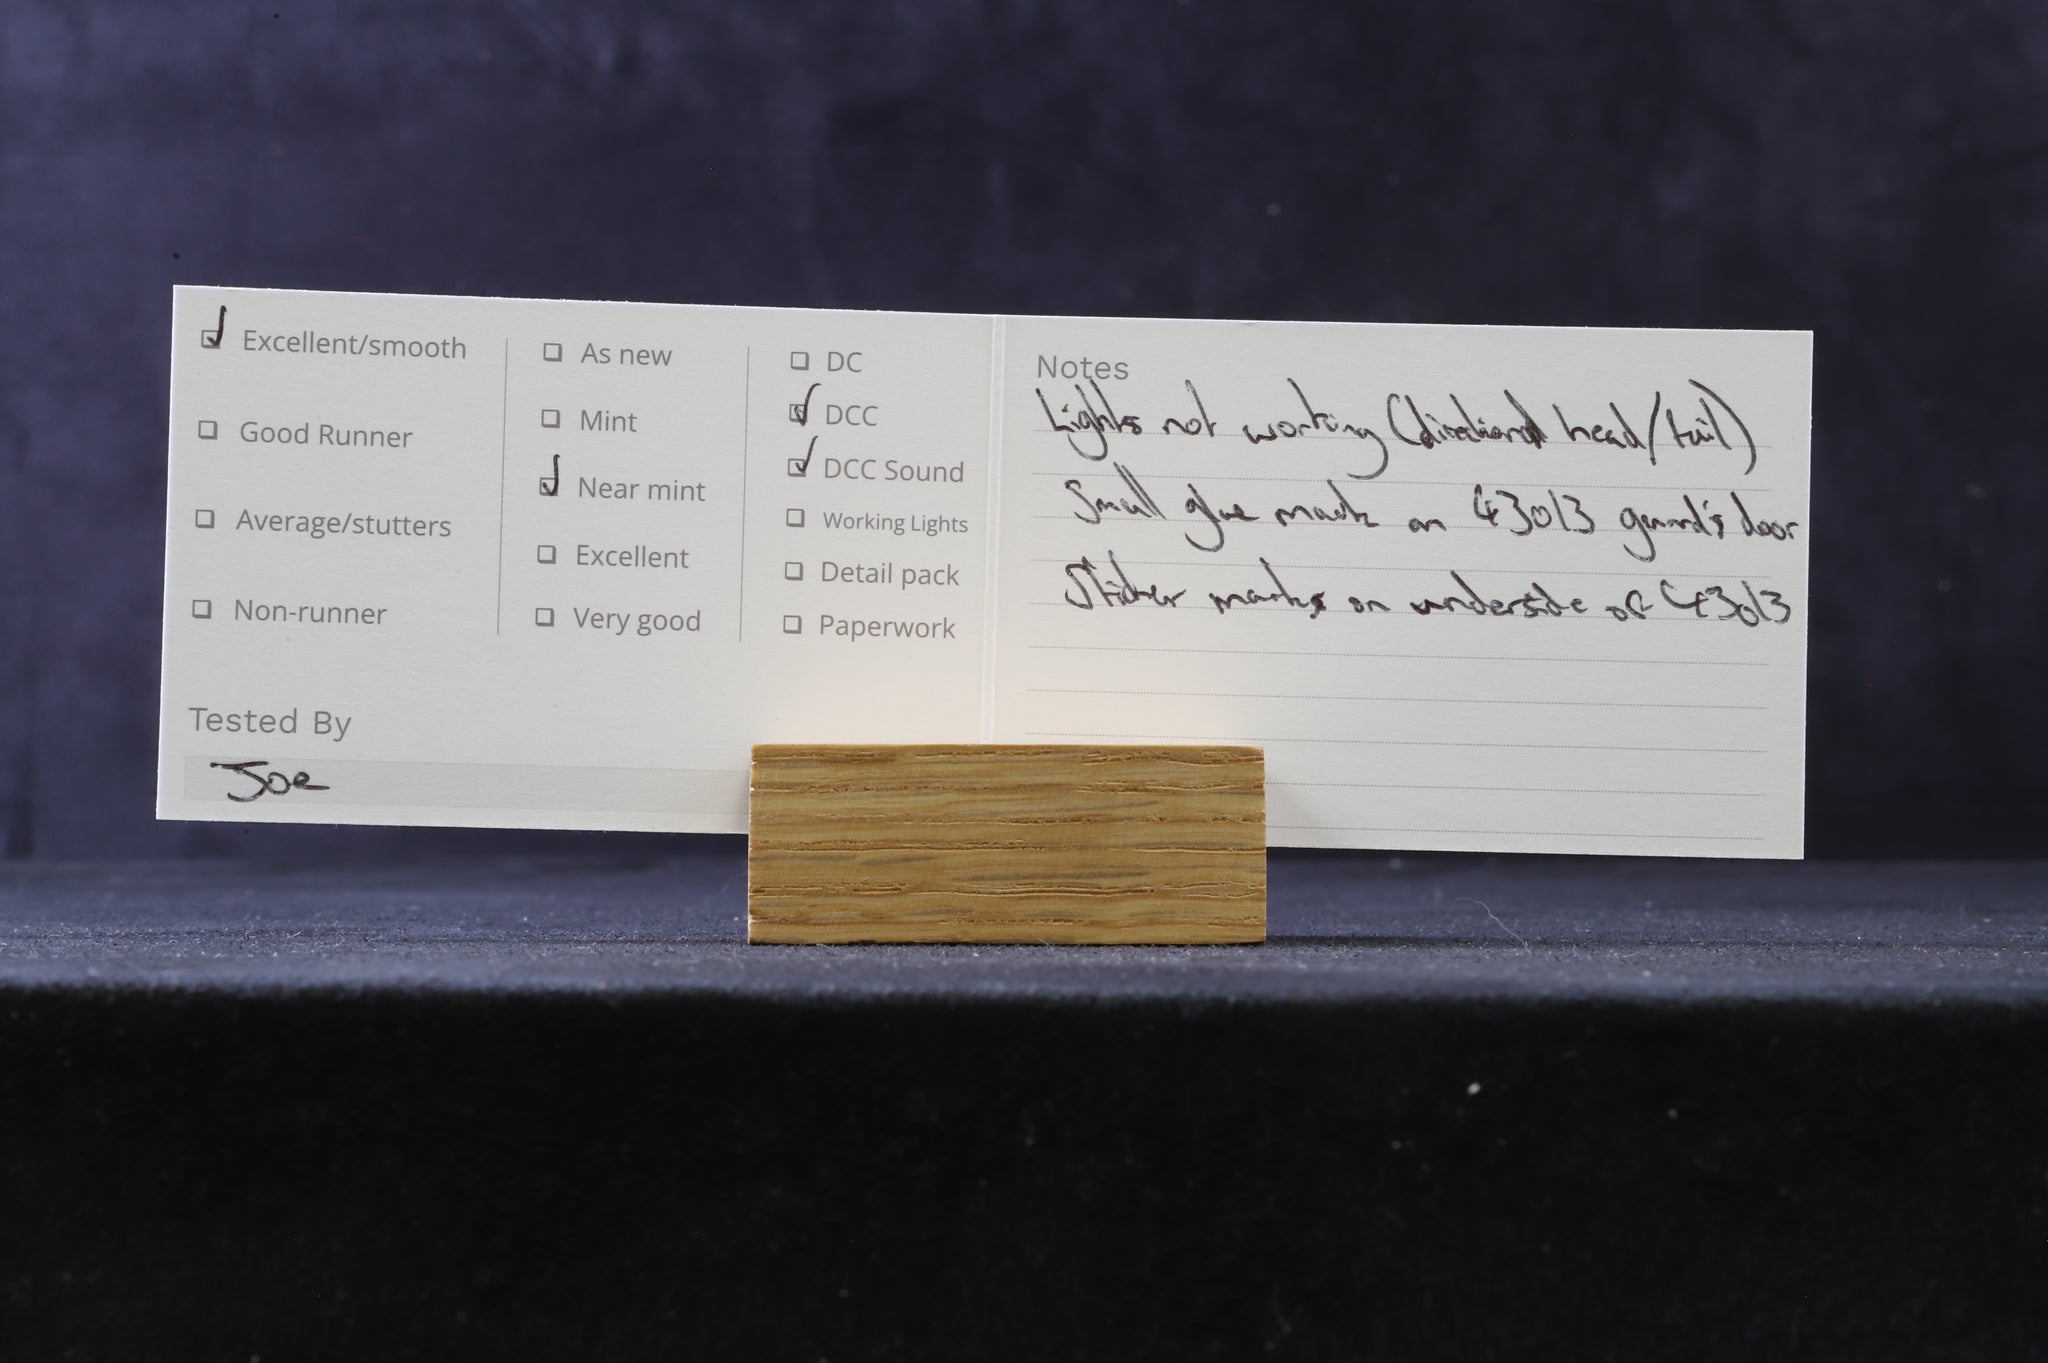 Excellent/smooth
Good Runner
Average/stutters
Non-runner
As new
Mint
Near mint
Excellent
Very good
DC
DCC
DCC Sound
Working Lights
Detail pack
Paperwork
Tested By
Joe
Notes
Lights not working (directional head/tail)
Small glue mark on 43013 guard's door
Sticker marks on underside of 43013